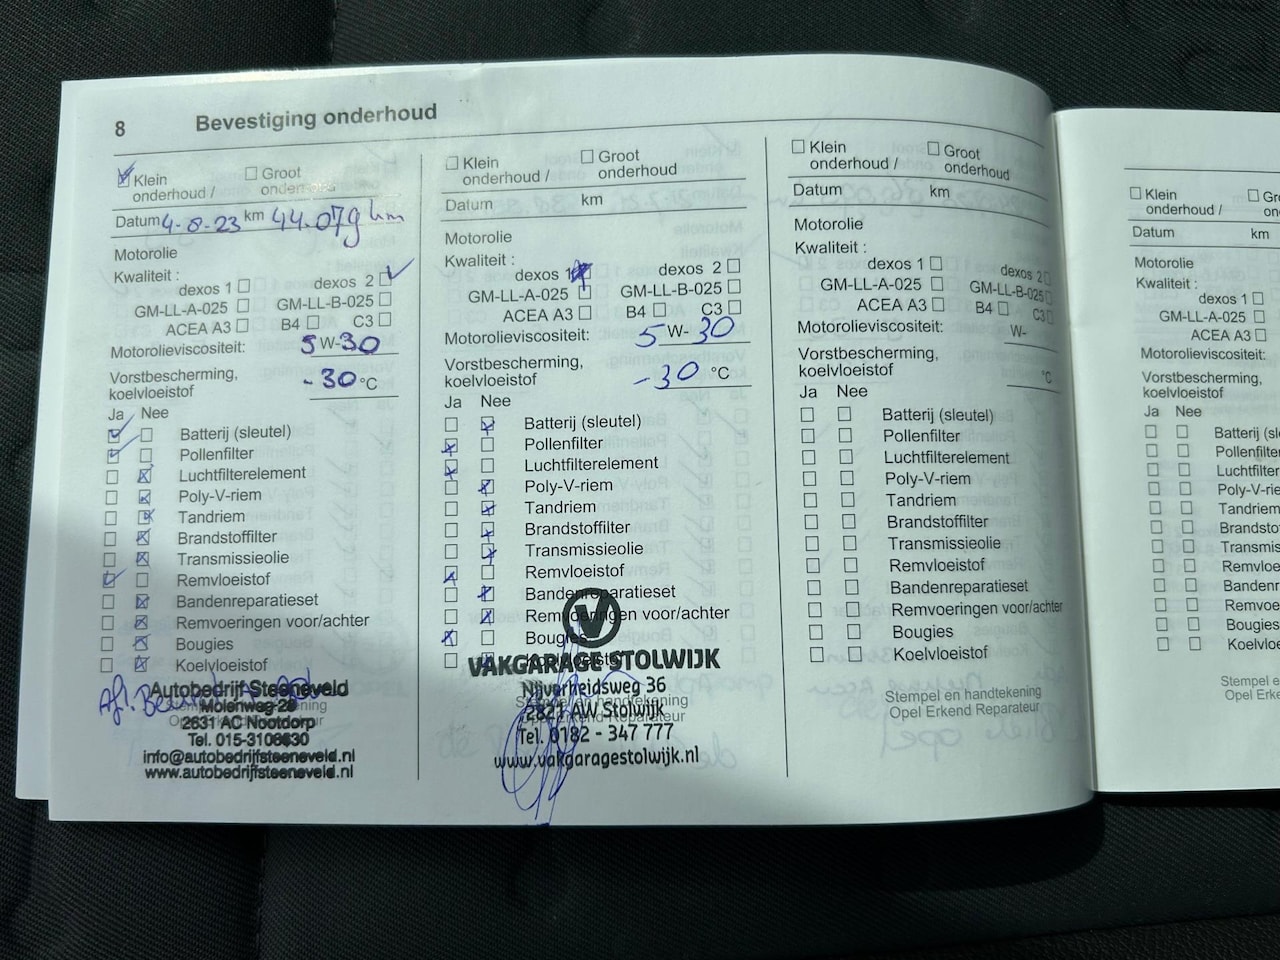 8 Bevestiging onderhoud
Klein onderhoud / Groot onderhoud
Datum 4-8-23 km 44.079 km
Motorolie
Kwaliteit :
dexos 1 dexos 2
GM-LL-A-025 GM-LL-B-025
ACEA A3 B4 C3
Motorolieviscositeit: 5 W-30
Vorstbescherming,
koelvloeistof -30 °C
Ja Nee
Batterij (sleutel)
Pollenfilter
Luchtfilterelement
Poly-V-riem
Tandriem
Brandstoffilter
Transmissieolie
Remvloeistof
Bandenreparatieset
Remvoeringen voor/achter
Bougies
Koelvloeistof
Autobedrijf Steeneveld
Molenweg 20
2631 AC Nootdorp
Tel. 015-3108630
info@autobedrijfsteeneveld.nl
www.autobedrijfsteeneveld.nl
Klein onderhoud / Groot onderhoud
Datum km
Motorolie
Kwaliteit :
dexos 1 dexos 2
GM-LL-A-025 GM-LL-B-025
ACEA A3 B4 C3
Motorolieviscositeit: 5 W- 30
Vorstbescherming,
koelvloeistof -30 °C
Ja Nee
Batterij (sleutel)
Pollenfilter
Luchtfilterelement
Poly-V-riem
Tandriem
Brandstoffilter
Transmissieolie
Remvloeistof
Bandenreparatieset
Remvoeringen voor/achter
Bougies
VAKGARAGE STOLWIJK
Nijverheidsweg 36
2821 AW Stolwijk
Tel. 0182 - 347 777
www.vakgaragestolwijk.nl
Stempel en handtekening
Opel Erkend Reparateur
Klein onderhoud / Groot onderhoud
Datum km
Motorolie
Kwaliteit :
dexos 1 dexos 2
GM-LL-A-025 GM-LL-B-025
ACEA A3 B4 C3
Motorolieviscositeit: W-
Vorstbescherming,
koelvloeistof °C
Ja Nee
Batterij (sleutel)
Pollenfilter
Luchtfilterelement
Poly-V-riem
Tandriem
Brandstoffilter
Transmissieolie
Remvloeistof
Bandenreparatieset
Remvoeringen voor/achter
Bougies
Koelvloeistof
Stempel en handtekening
Opel Erkend Reparateur
Klein onderhoud / Gro
Datum km
Motorolie
Kwaliteit :
dexos 1
GM-LL-A-025
ACEA A3
Motorolieviscositeit:
Vorstbescherming,
koelvloeistof
Ja Nee
Batterij (sle
Pollenfilter
Luchtfilter
Poly-V-rie
Tandriem
Brandsto
Transmis
Remvloei
Bandenr
Remvoe
Bougies
Koelvloe
Stempel e
Opel Erke